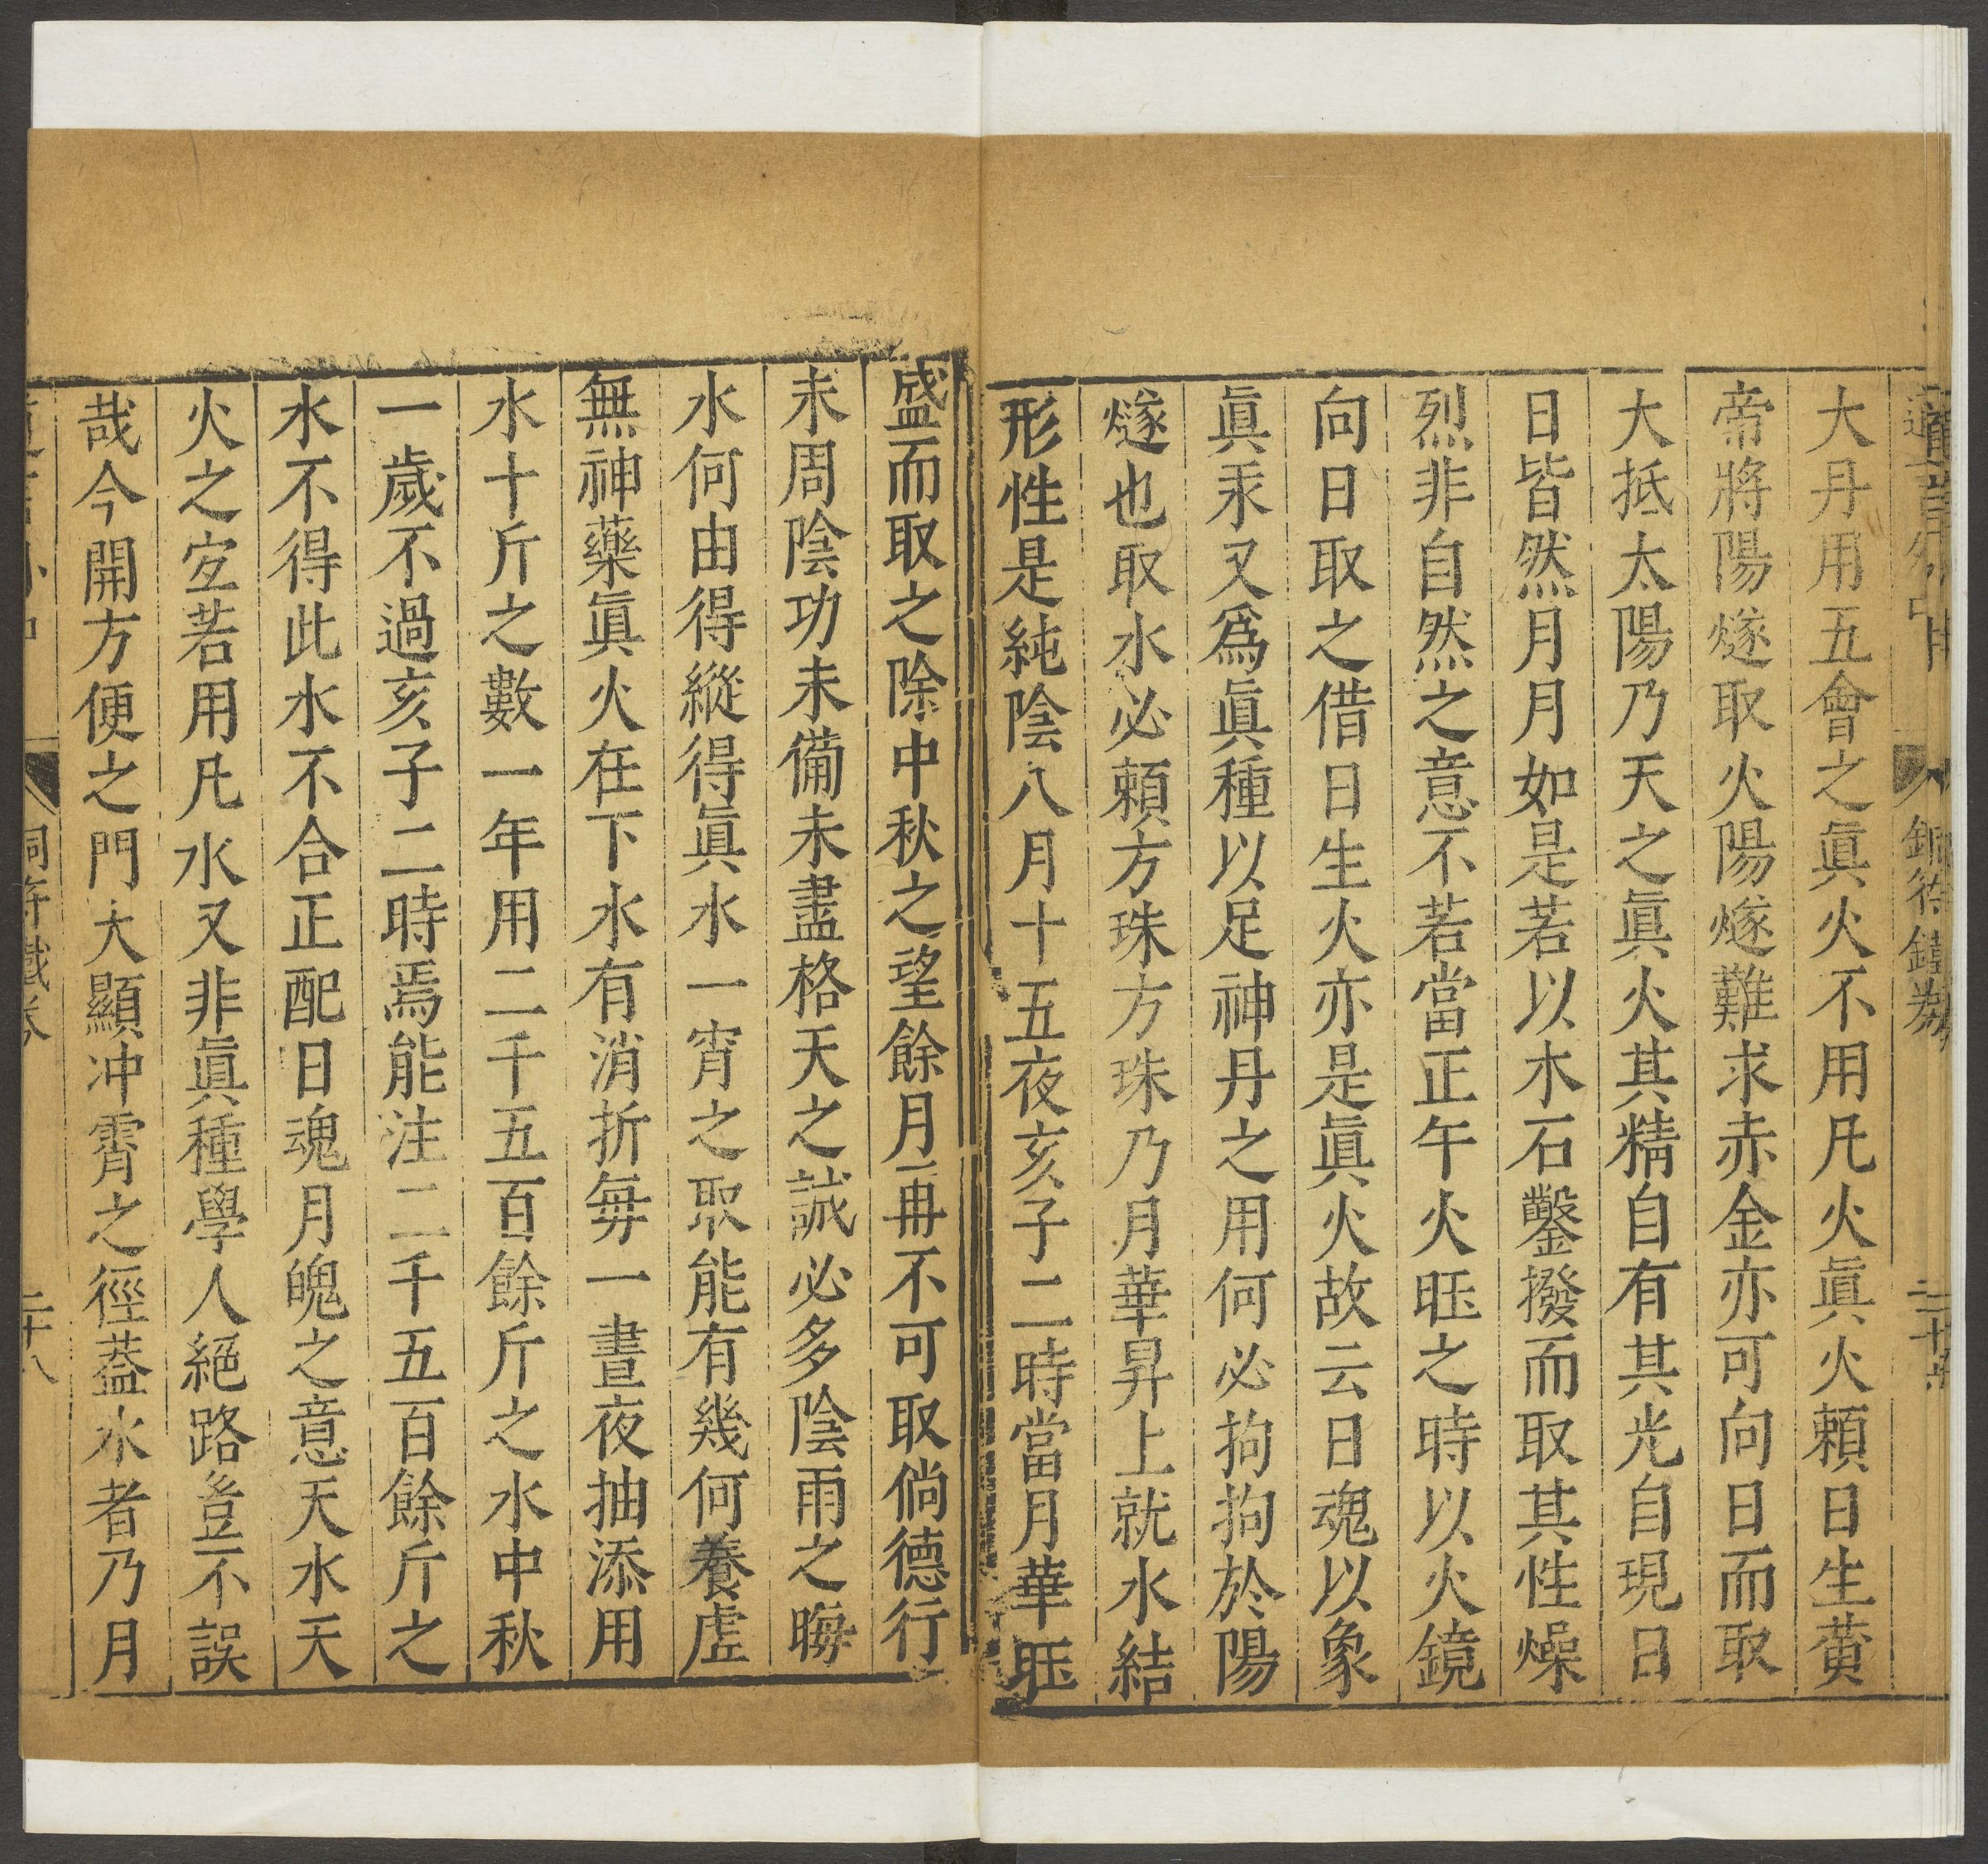 大丹用五會之眞火不用凡火眞火賴日生黄
帝將陽燧取火陽燧難求赤金亦可向日而取
大抵太陽乃天之眞火其精自有其光自現日
日皆然月月如是若以木石鑿撥而取其性燥
烈非自然之意不若當正午火旺之時以火鏡
向日取之借日生火亦是眞火故云日魂以象
眞汞又爲眞種以足神丹之用何必拘拘於陽
燧也取水必賴方珠方珠乃月華昇上就水結
形性是純陰八月十五夜亥子二時當月華旺
盛而取之除中秋之望餘月一再不可取倘德行
未周陰功未備未盡格天之誠必多陰雨之晦
水何由得縱得眞水一宵之取能有幾何養虛
無神藥眞火在下水有消折每一晝夜抽添用
水十斤之數一年用二千五百餘斤之水中秋
一歲不過亥子二時焉能注二千五百餘斤之
水不得此水不合正配日魂月魄之意天水天
火之宐若用凡水又非眞種學人絕路豈不誤
哉今開方便之門大顯冲霄之徑葢水者乃月
二十八